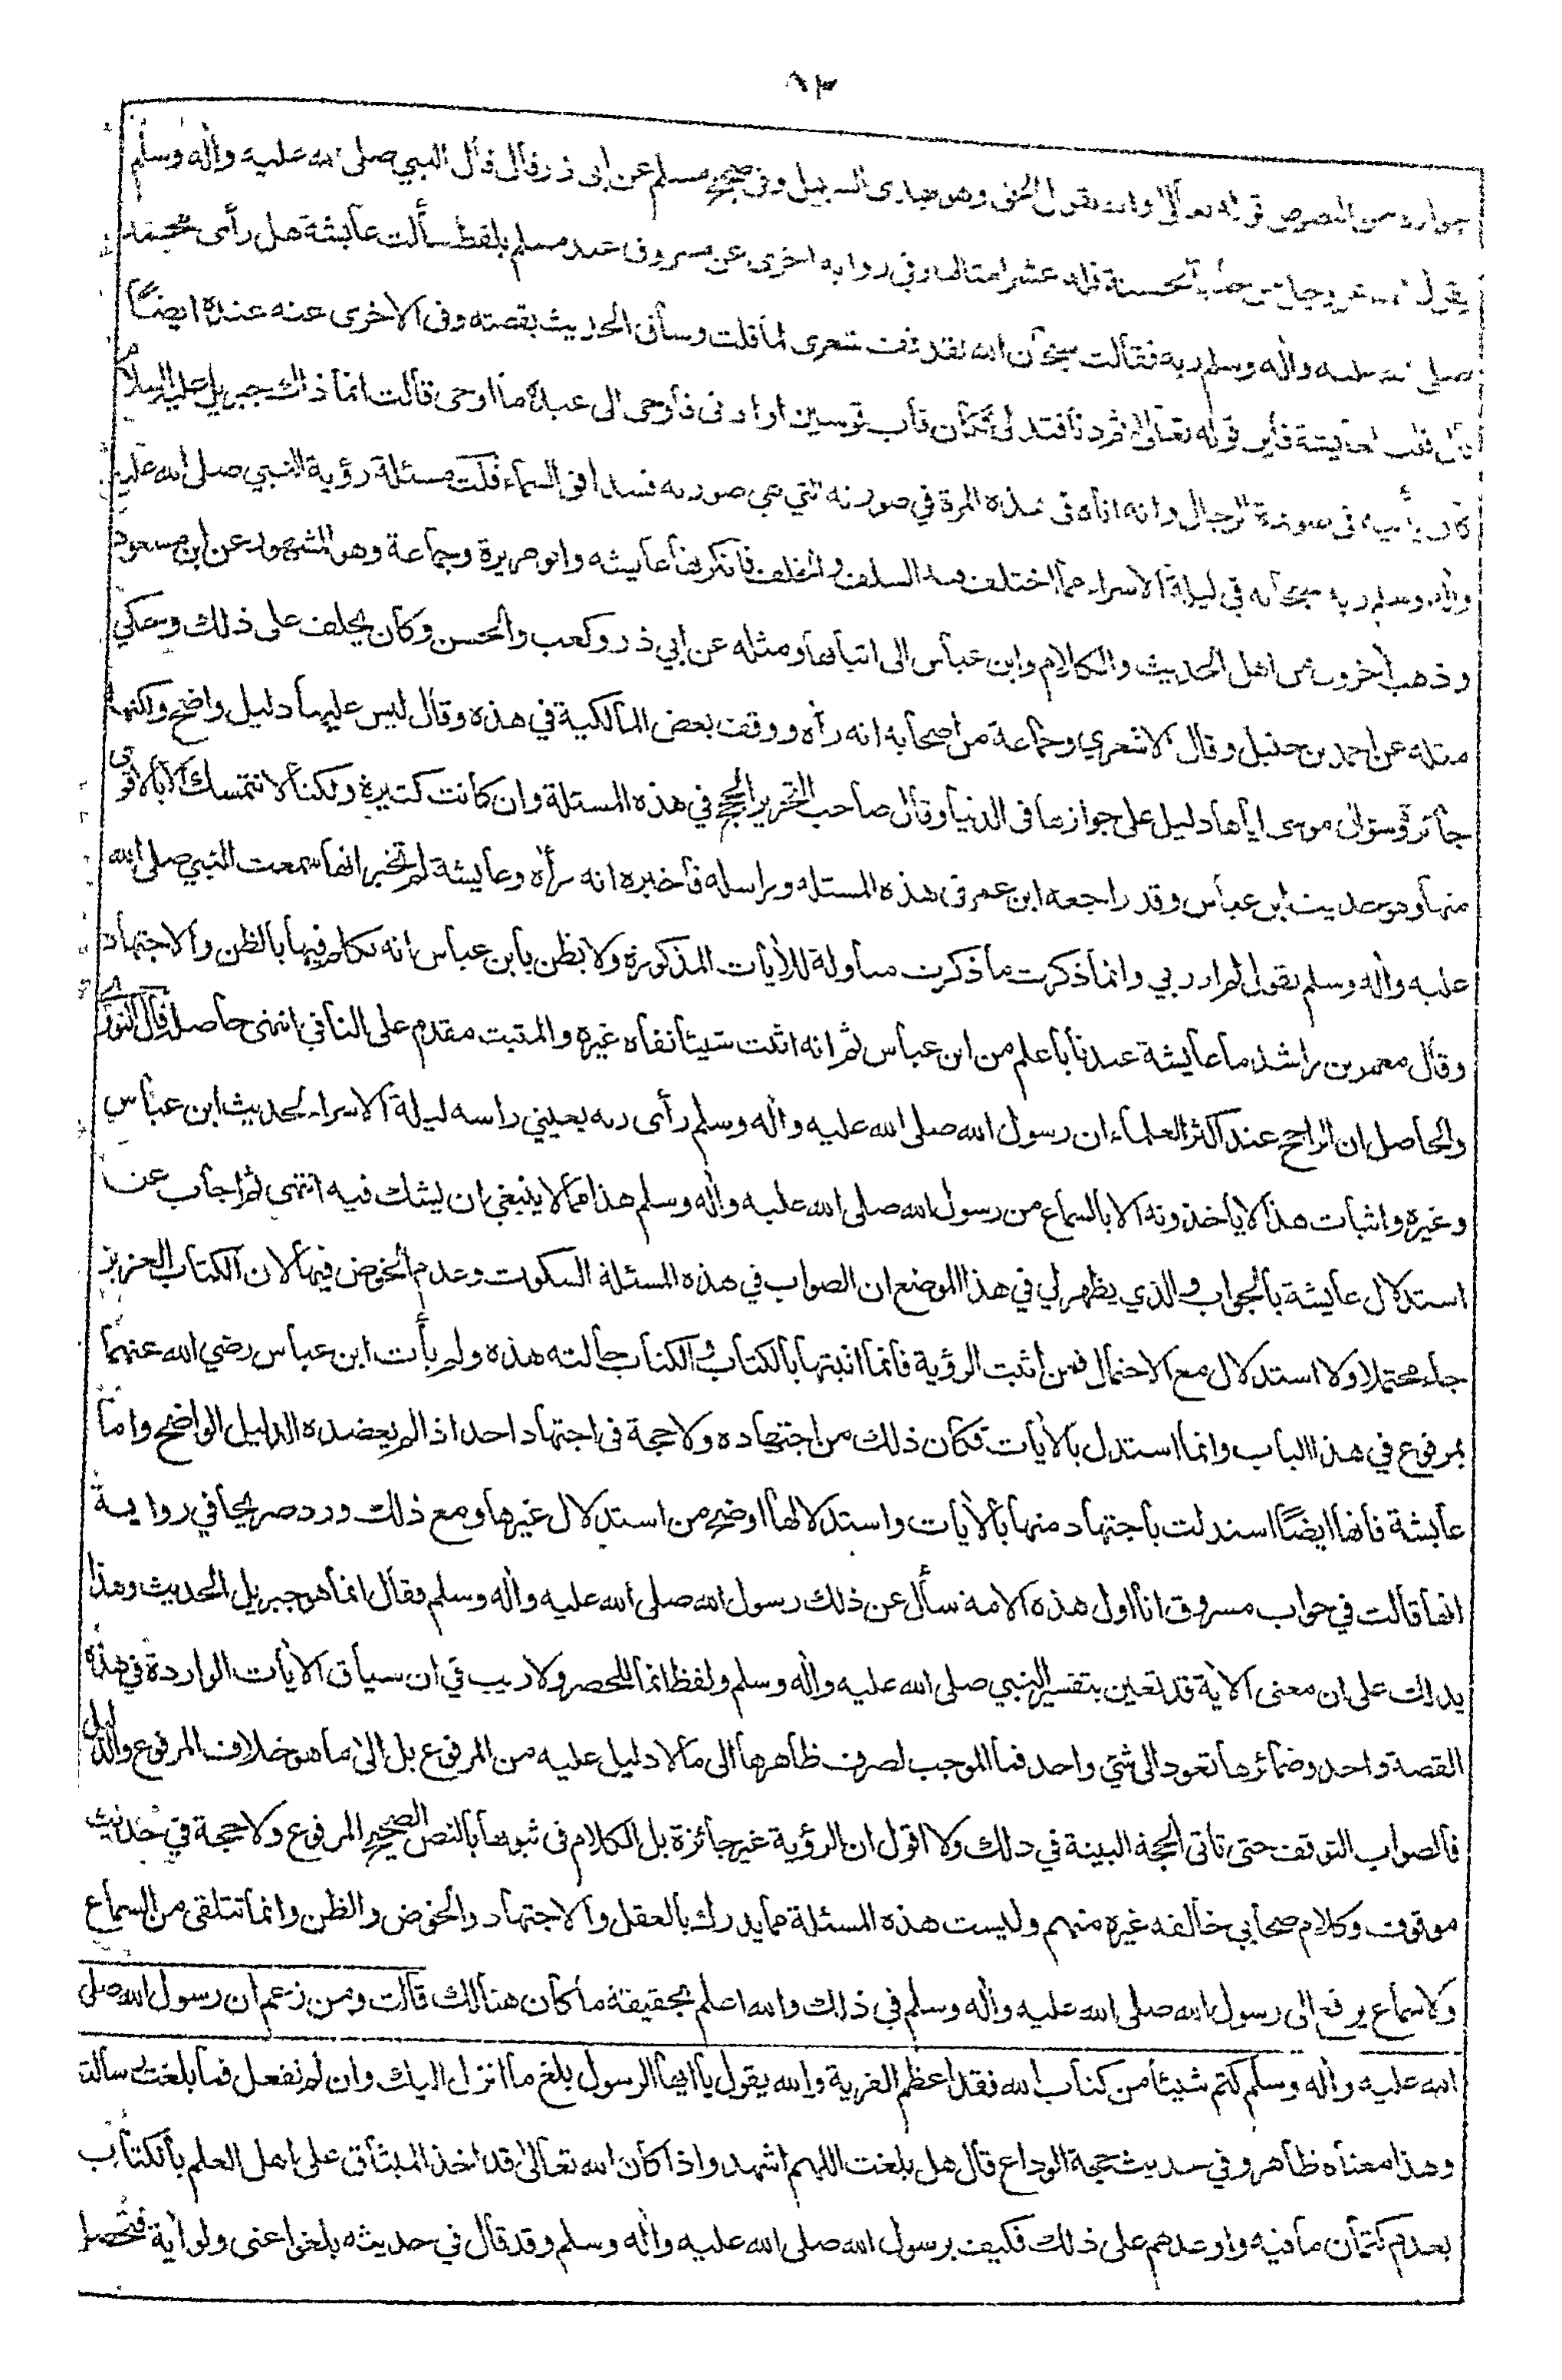 ٩٣
جوازه من النصوص قوله تعالى والله يقول الحق وهو يهدى السبيل وفى صحيح مسلم عن ابى ذر قال قال النبي صلى الله عليه واله وسلم
يقول الله عز وجل من جاء بالحسنة فله عشر امثالها وفي رواية اخرى عن مسروق عند مسلم بلفظ سألت عايشة هل رأى محمد
صلى الله عليه واله وسلم ربه فقالت سبحان الله لقد قف شعرى لما قلت وساق الحديث بقصته وفى الاخرى عنه عنده ايضًا
قال قلت لعايشة فاين قوله تعالى ثم دنا فتدلى فكان قاب قوسين او ادنى فاوحى الى عبده ما اوحى قالت انما ذاك جبريل عليه السلام
كان يأتيه فى صورة الرجال وانه اتاه فى هذه المرة في صورته التي هي صورته فسد افق السماء قلت مسئلة رؤية النبي صلى الله عليه
واله وسلم ربه سبحانه في ليلة الاسراء مما اختلف فيه السلف والخلف فانكرتها عايشه وابو هريرة وجماعة وهو المشهور عن ابن مسعود
وذهب آخرون من اهل الحديث والكلام وابن عباس الى اثباتها ومثله عن ابي ذر وكعب والحسن وكان يحلف على ذلك وحكي
مثله عن احمد بن حنبل وقال الاشعري وجماعة من اصحابه انه رأه ووقف بعض المالكية في هذه وقال ليس عليها دليل واضح ولكنها
جائزة وسؤال موسى اياها دليل على جوازها فى الدنيا وقال صاحب التحرير الحجج في هذه المسئلة وان كانت كثيرة ولكنا لا نتمسك الا بالاقوى
منها وهو حديث ابن عباس وقد راجعه ابن عمر فى هذه المسئله وراسله فأخبره انه رأه وعايشة لم تخبر انها سمعت النبي صلى الله
عليه واله وسلم يقول لم ار ربي وانما ذكرت ما ذكرت متأولة للأيات المذكورة ولا يظن بابن عباس انه تكلم فيها بالظن والاجتهاد
وقال معمر بن راشد ما عايشة عندنا باعلم من ابن عباس ثم انه اثبت شيئا نفاه غيره والمثبت مقدم على النافي انتهى حاصله قال النووي
والحاصل ان الراجح عند اكثر العلماء ان رسول الله صلى الله عليه واله وسلم رأى ربه بعيني راسه ليلة الاسراء لحديث ابن عباس
وغيره واثبات هذا لا يأخذونه الا بالسماع من رسول الله صلى الله عليه واله وسلم هذا مما لا ينبغي ان يشك فيه انتهى ثم اجاب عن
استدلال عايشة بالجواب والذي يظهر لي في هذا الموضع ان الصواب في هذه المسئلة السكوت وعدم الخوض فيها لان الكتاب العزيز
جاء محتملا ولا استدلال مع الاحتمال فمن اثبت الرؤية فانما اثبتها بالكتاب والكتاب حالته هذه ولم يأت ابن عباس رضي الله عنهما
بمرفوع في هذا الباب وانما استدل بالأيات فكان ذلك من اجتهاده ولا حجة فى اجتهاد احد اذا لم يعضده الدليل الواضح واما
عايشة فانها ايضًا استدلت باجتهاد منها بالأيات واستدلالها اوضح من استدلال غيرها ومع ذلك ورد صريحا في رواية
انها قالت في جواب مسروق انا اول هذه الامة سأل عن ذلك رسول الله صلى الله عليه واله وسلم فقال انما هو جبريل الحديث وهذا
يدلك على ان معنى الاية قد تعين بتفسير النبي صلى الله عليه واله وسلم ولفظ انما للحصر ولا ريب في ان سياق الأيات الواردة في هذه
القصة واحد وضمائرها تعود الى شئ واحد فما الموجب لصرف ظاهرها الى ما لا دليل عليه من المرفوع بل الى ما هو خلاف المرفوع والدليل
فالصواب التوقف حتى تاتى الحجة البينة في ذلك ولا اقول ان الرؤية غير جائزة بل الكلام فى ثبوتها بالنص الصحيح المرفوع ولا حجة في حديث
موقوف وكلام صحابي خالفه غيره منهم وليست هذه المسئلة مما يدرك بالعقل والاجتهاد والخوض والظن وانما تتلقى من السماع
ولا سماع يرفع الى رسول الله صلى الله عليه واله وسلم في ذلك والله اعلم بحقيقة ما كان هنالك قالت ومن زعم ان رسول الله صلى
الله عليه واله وسلم كتم شيئا من كتاب الله فقد اعظم الفرية والله يقول يا ايها الرسول بلغ ما انزل اليك وان لم تفعل فما بلغت رسالته
وهذا معناه ظاهر وفي حديث حجة الوداع قال هل بلغت اللهم اشهد واذا كان الله تعالى قد اخذ الميثاق على اهل العلم بالكتاب
بعدم كتمان ما فيه واوعدهم على ذلك فكيف برسول الله صلى الله عليه واله وسلم وقد قال في حديثه بلغوا عنى ولو اية فتحصل